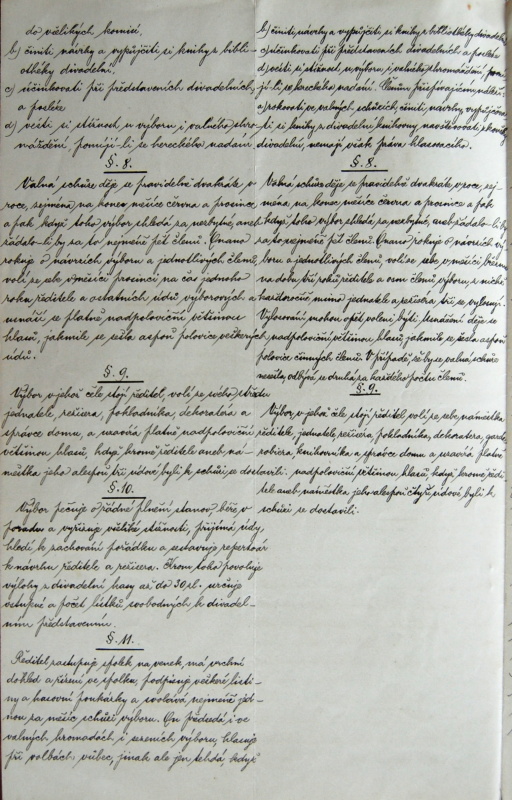 do všelikých komisí,
b) činiti návrhy a vypůjčiti si knihy z bibli-
othéky divadelní,
c) súčinkovati při představeních divadelních,
a posléze
d) vésti si stížnost u výboru i valného shro-
máždění, pomíjí-li se herecké nadání.
§. 8.
Valná schůze děje se pravidelně dvakráte v
roce, zejména na konec měsíce června a prosince,
a pak když toho výbor shledá za nezbytné, aneb
žádalo-li by za to nejméně pět členů. Onano
rokuje o návrzích výboru a jednotlivých členů,
volí se v měsíci prosinci na čas jednoho
roku ředitele a ostatních údů výborových a
usnáší se platně nadpoloviční většinou
hlasů, jakmile se sešla aspoň polovice veškerých
údů.
§. 9.
Výbor v jehož čele stojí ředitel, volí ze svého středu
jednatele, režisera, pokladníka, dekoratéra a
správce domu, a usnáší platně nadpoloviční
většinou hlasů, když kromě ředitele aneb ná-
městka jeho alespoň tři údové byli k schůzi se dostavili.
§. 10.
Výbor pečuje o řádné plnění stanov, béře v
poradu a vyřizuje všeliké stížnosti, přijímá údy,
hledí k zachování pořádku a sestavuje repertoár
k návrhu ředitele a režisera. Krom toho povoluje
výlohy z divadelní kasy až do 30 zl. určuje
vstupné a počet lístků svobodných k divadel-
ním představením.
§. 11.
Ředitel zastupuje spolek na venek, má vrchní
dohled a řízení ve spolku, podpisuje veškeré listi-
ny a kasovní poukázky a svolává nejméně jed-
nou za měsíc schůzi výboru. On předsedá i ve
valných hromadách i sezeních výboru, hlasuje
při volbách vůbec, jinak ale jen tehdá když
b) činiti návrhy a vypůjčiti si knihy z bibliotéky divadelní
c) súčinkovati při představeních divadelních a posléze
d) vésti si stížnost u výboru i valného shromáždění pomí-
jí-li se herecké nadání. Členům přispívajícím náleží
a) rokovati ve valných schůzích, činiti návrhy, vypůjčova-
ti si knihy z divadelní knihovny, navštěvovati zkoušky
divadelní, nemají však práva hlasovacího.
§. 8.
Valná schůze děje se pravidelně dvakráte v roce, zej-
mena na konec měsíce června a prosince a pak
když toho výbor shledá za nezbytné, aneb žádalo-li by
za to nejméně pět členů. Onano rokuje o návrzích vý-
boru a jednotlivých členů, volí se v měsíci březnu
na dobu tří roků ředitele a osm členů výboru, z nichž
každoročně mimo jednatele a režisera tři se vylosují.
Vylosovaní mohou opět volení býti. Usnášení děje se
nadpoloviční většinou hlasů jakmile se sešla aspoň
polovice činných členů. V případě, že by se valná schůze
nesešla, odbývá se druhá za každého počtu členů.
§. 9.
Výbor v jehož čele stojí ředitel volí ze sebe náměstka
ředitele, jednatele, režisera, pokladníka, dekoratera, garde-
robiera, knihovníka a správce domu a usnáší platně
nadpoloviční většinou hlasů, když kromě ředi-
tele aneb náměstka jeho alespoň čtyři údové byli k
schůzi se dostavili.